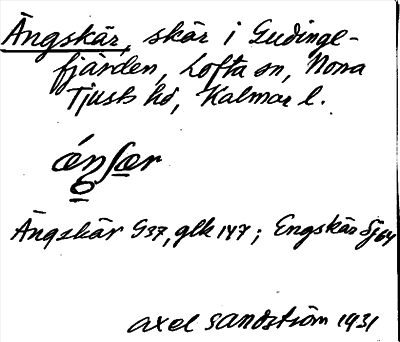 Ängskär, skär i Gudinge-
fjärden, Lofta sn, Norra
Tjusts hd, Kalmar l.
Ängskär G37, glk 147; Engskär Sj64
Axel Sandström 1931